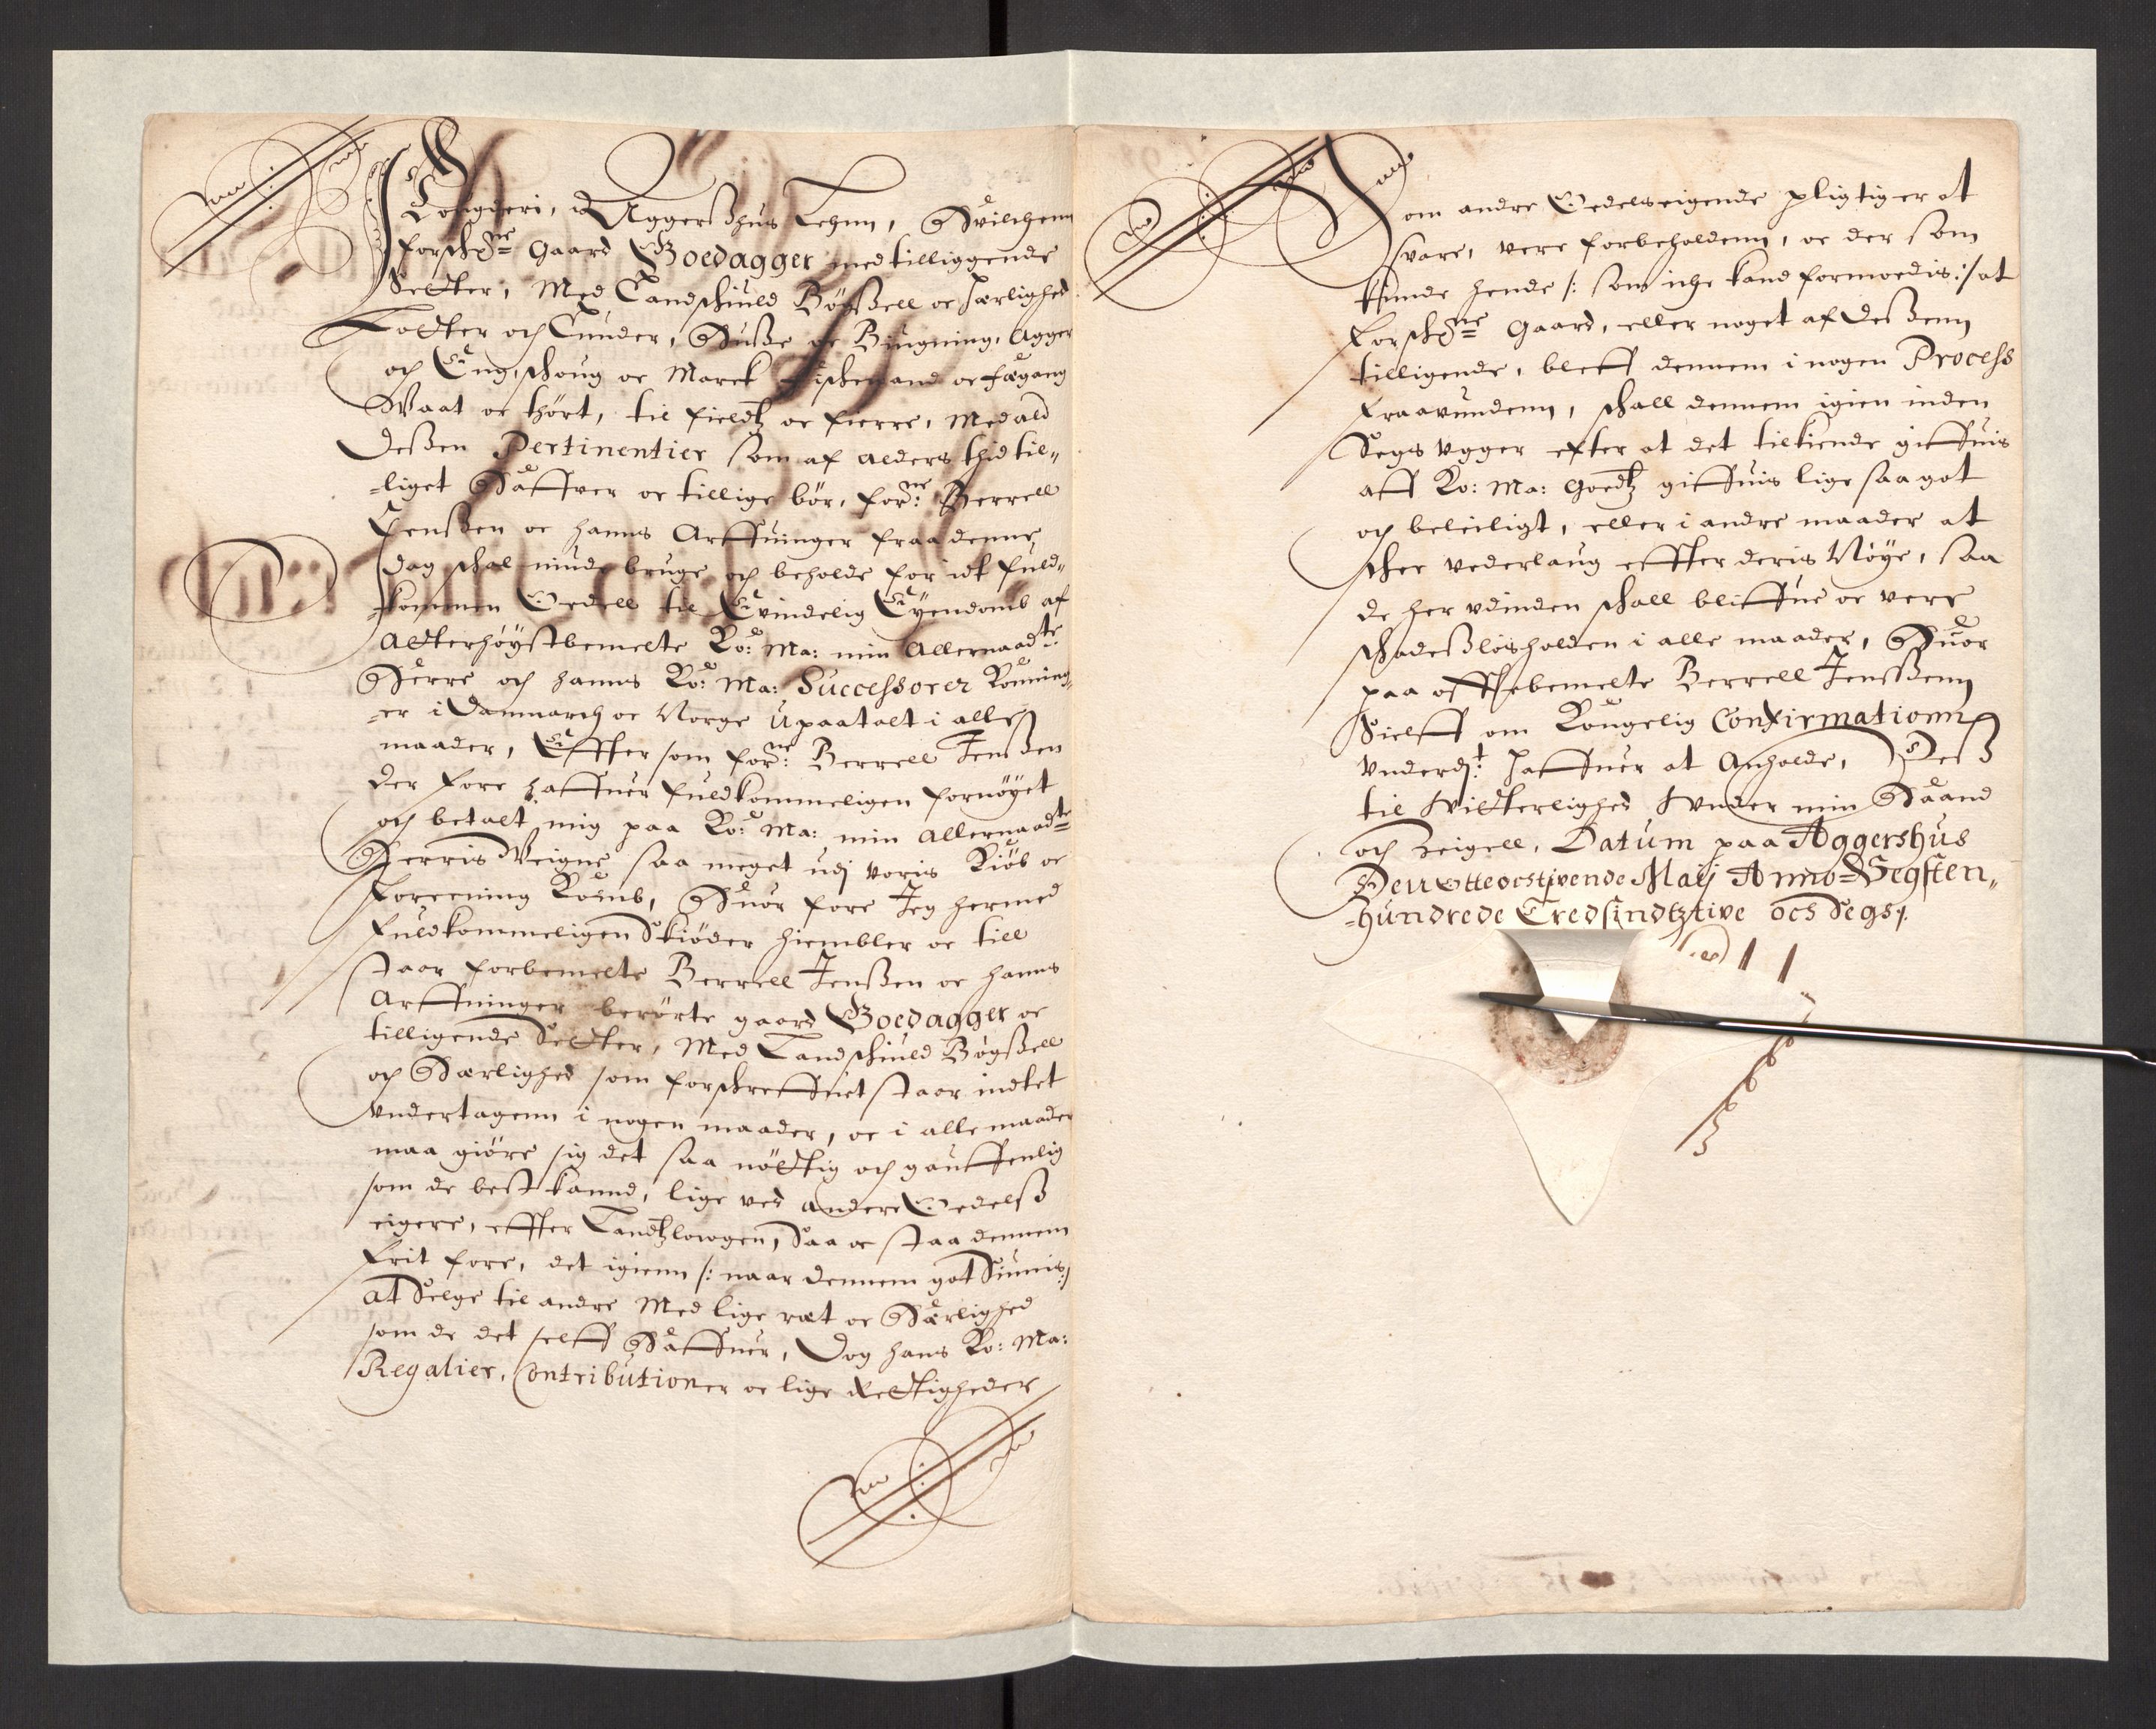 Fougderi, i Aggerßhus Lehnn, Huilchenn
forschne: Gaard Boedagger med tilliggende
Setter, Med Landschiuld Böxßell oc herlighed
Lotter och Lunder, Huße oc Biugning, Agger
och Eng, schoug oc Marck Fischevand oc fægang
Waat oc thört, til fieldtz oc fierre, Med ald
Deßen Pertinentier som af Alders thid til-
-liget Haffver oc tillige bör, forne: Berrell
Jenßen oc hanns Arffuinger fraa denne
dag schal niude bruge och beholde for idt fuld-
kommen Oedell til Evindelig Eyendomb af
Alterhöystbemelte Ko: Ma: min Allernaadte:
Herre och hanns Ko: Ma: Successorer Konning-
-er i Danmarch oc Norge Upaatalt i alle
maader, Effter som forne: Berrell Jenßen
Der fore haffuer fuldkommeligen fornöyet
och betalt mig paa Ko: Ma: min Allernaadte
Herris Veigne saa meget udj voris Kiöb oc
foreening Komb, Huor fore Jeg hermed
fuldkommeligen Skiöder hiembler oc till
staar forbemelte Berrell Jenßen oc hanns
Arffuinger berörte gaard Boedagger oc
tilligende Setter, Med Landschiuld Bøgßell
och Herlighed som forschreffuet staar indtet
undertagenn i nogen maader, oc i alle maader
maa giöre sig det saa nöttig och gauffenlig
som de best kannd, lige ved andere Oedelß
eigere, effter Landtzlowgen, Saa oc staa dennem
frit fore, det igienn /: naar dennem got Siunis :/
at Selge til andre Med lige ræt oc Herlighed
som de det selff Haffuer, Dog hans Ko: Ma:
Regalier, Contributioner oc lige Rettigheder
Som andre Oedelseigende pligtig er at
svare, vere forbeholdenn, oc der som
kunde hende /: som iche kand formoedis :/ at
forschne Gaard, eller noget af Deßenn
tilligende, bleff dennem i nogen Process
fraavundenn, schall dennem igien inden
Segs Ugger efter at det tilkiende giffuis
aff Ko: Ma: Goedtz giffuis lige saa got
och beleiligt, eller i andre maader at
schee vederlaug effter deris Nöye, saa
de her udinden schall bliffue oc vere
schadeßlös holden i alle maader, Huor
paa offtebemelte Berrell Jenßenn
Sielff om Kongelig Confirmationn
Underdt: haffuer at Anholde, Deß
til Vitterlighed Under min Haand
och Zeigell, Datum paa Aggershus
Den otteoctivende Maij Anno Segsten-
-hundrede Tredsindtztive och Segs.